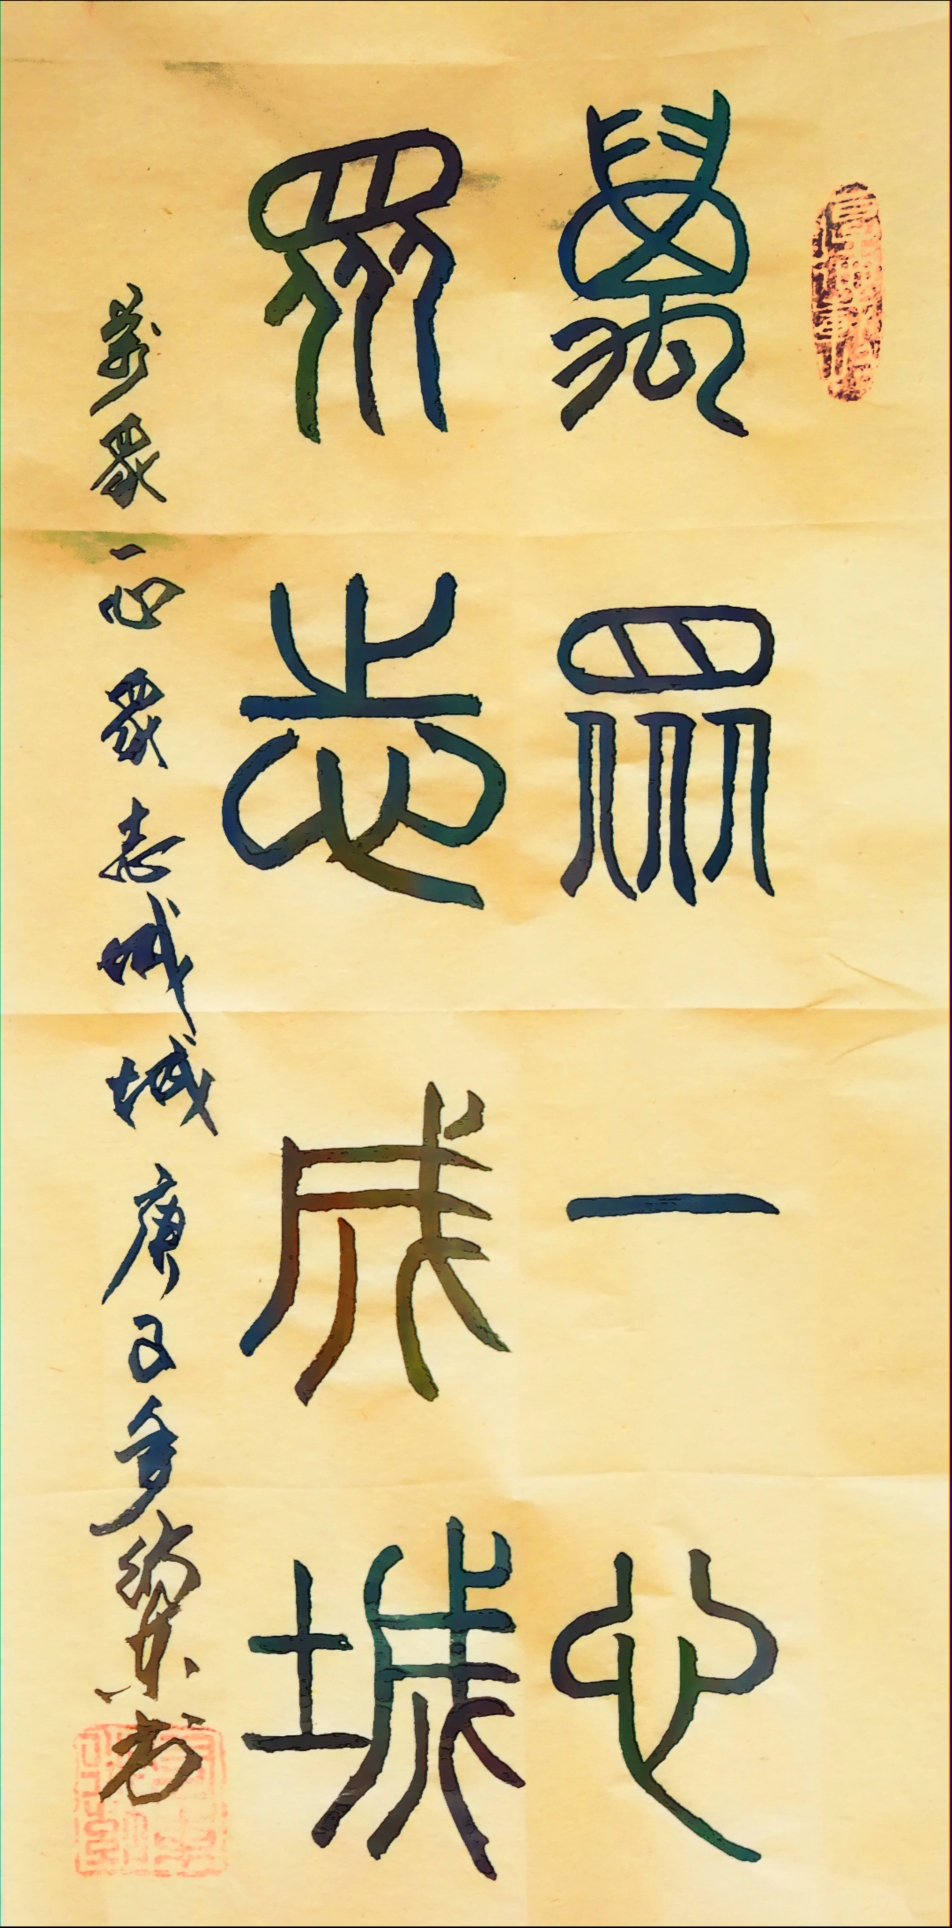 萬眾一心
眾志成城
萬眾一心眾志成城庚子年
書